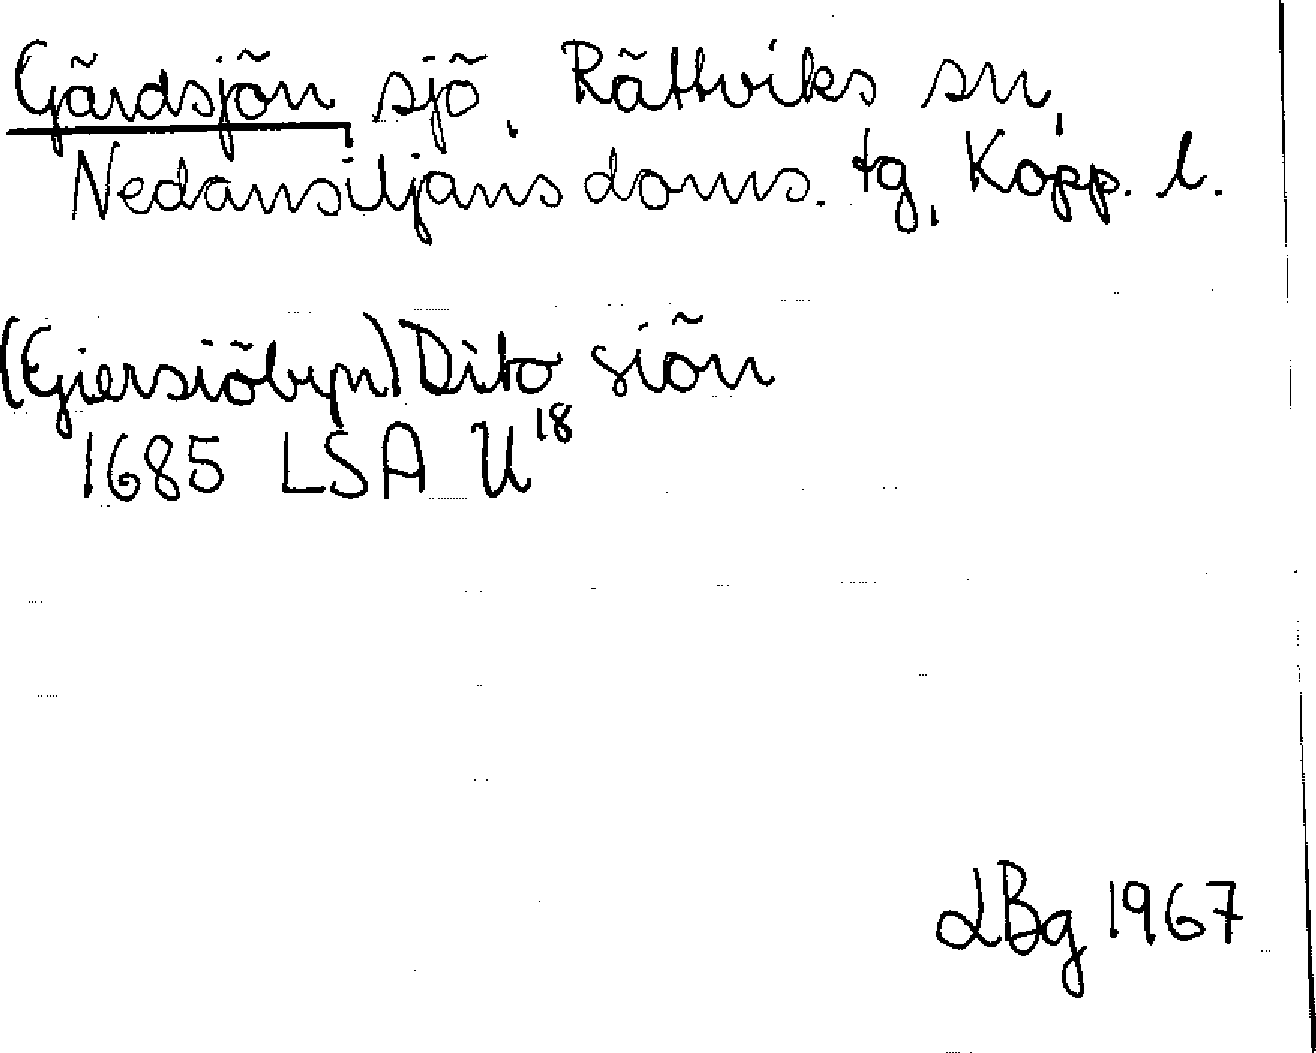 Gärdsjön, sjö, Rättviks sn,
Nedansiljans doms. tg, Kopp. l.
(Gjersiöbyn) Dito siön
1685 LSA U18
LBg 1967